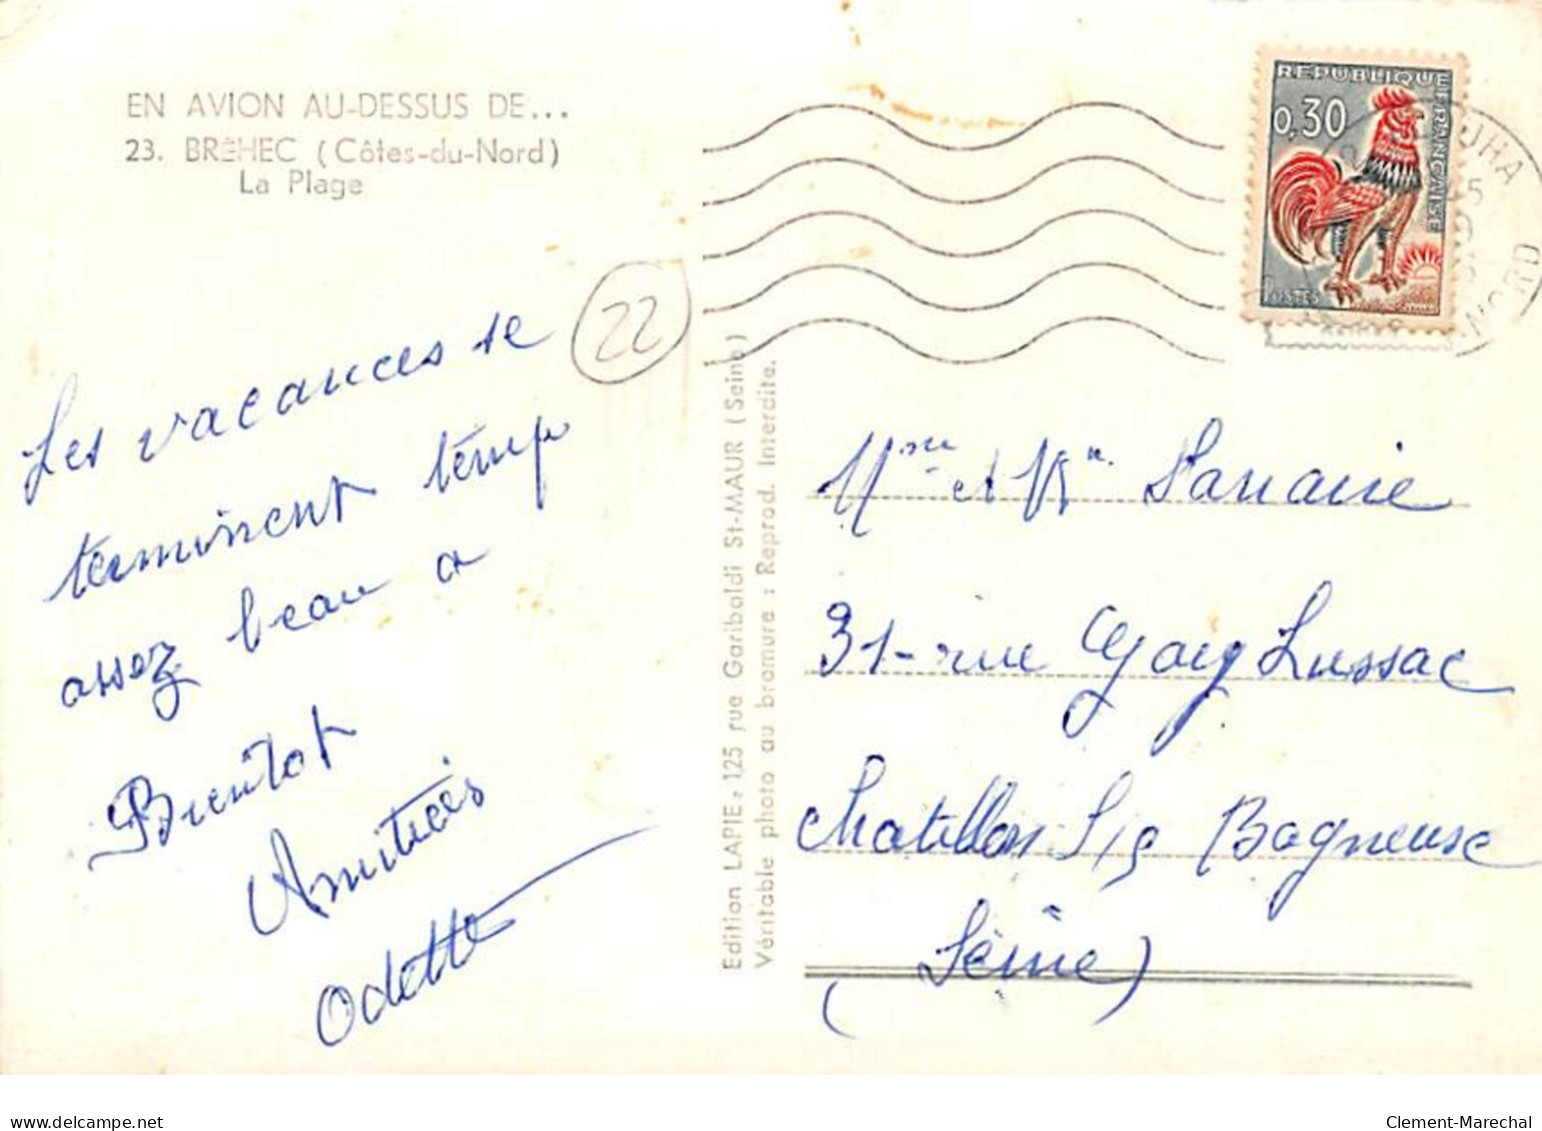 EN AVION AU-DESSUS DE...
23. BRÉHEC (Côtes-du-Nord)
La Plage
22
Les vacances se
terminent temps
assez beau a
Bientôt
Amitiés
Odette
Edition LAPIE, 125 rue Garibaldi St-MAUR (Seine)
Véritable photo au bromure : Reprod. Interdite.
REPUBLIQUE FRANÇAISE
0,30
POSTES
UHA
NORD
Mme et Mr
31 - rue Gay Lussac
Chatillon S/s Bagneuse
(Seine)
delcampe.net
Clement-Marechal